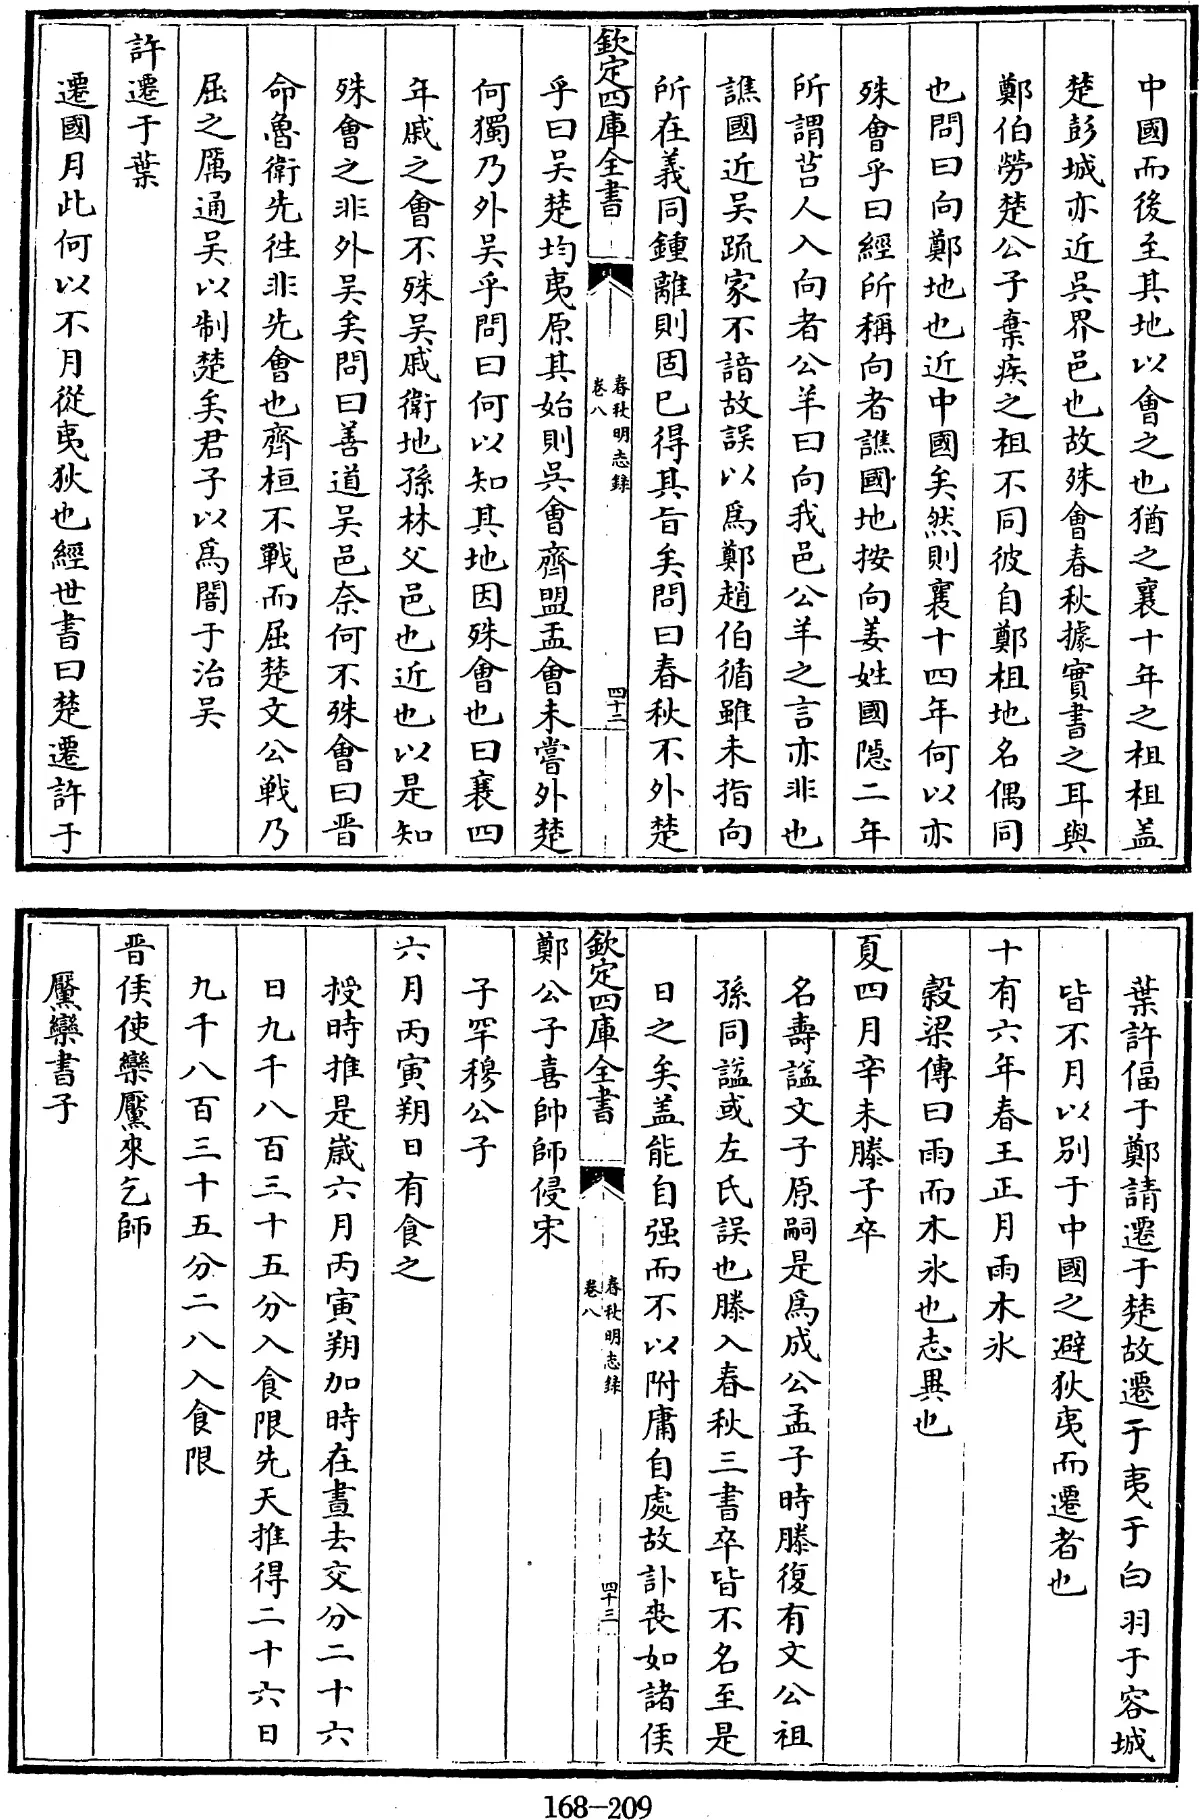 中國而後至其地以會之也猶之襄十年之柤柤盖
楚彭城亦近呉界邑也故殊會春秋據實書之耳與
鄭伯勞楚公子棄疾之柤不同彼自鄭柤地名偶同
也問曰向鄭地也近中國矣然則襄十四年何以亦
殊會乎曰經所稱向者譙國地按向姜姓國隱二年
所謂莒人入向者公羊曰向我邑公羊之言亦非也
譙國近吴䟽家不諳故誤以爲鄭趙伯循雖未指向
所在義同鍾離則固已得其旨矣問曰春秋不外楚
欽定四庫全書
春秋明志録
卷八
四十二
乎曰吴楚均夷原其始則呉會齊盟盂會未嘗外楚
何獨乃外吴乎問曰何以知其地因殊會也曰襄四
年戚之會不殊吴戚衛地孫林父邑也近也以是知
殊會之非外吴矣問曰善道吴邑奈何不殊會曰晉
命魯衛先徃非先會也齊桓不戰而屈楚文公戰乃
屈之厲通吴以制楚矣君子以爲闇于治吴
許遷于葉
遷國月此何以不月從夷狄也經世書曰楚遷許于
葉許偪于鄭請遷于楚故遷于夷于白羽于容城
皆不月以别于中國之避狄夷而遷者也
十有六年春王正月雨木冰
榖梁傳曰雨而木氷也志異也
夏四月辛未滕子卒
名壽諡文子原嗣是爲成公孟子時滕復有文公祖
孫同諡或左氏誤也滕入春秋三書卒皆不名至是
日之矣盖能自强而不以附庸自處故訃喪如諸侯
欽定四庫全書
春秋明志録
卷八
四十三
鄭公子喜帥師侵宋
子罕穆公子
六月丙寅朔日有食之
授時推是歲六月丙寅朔加時在晝去交分二十六
日九千八百三十五分入食限先天推得二十六日
九千八百三十五分二八入食限
晉侯使欒黶來乞師
黶欒書子
168-209